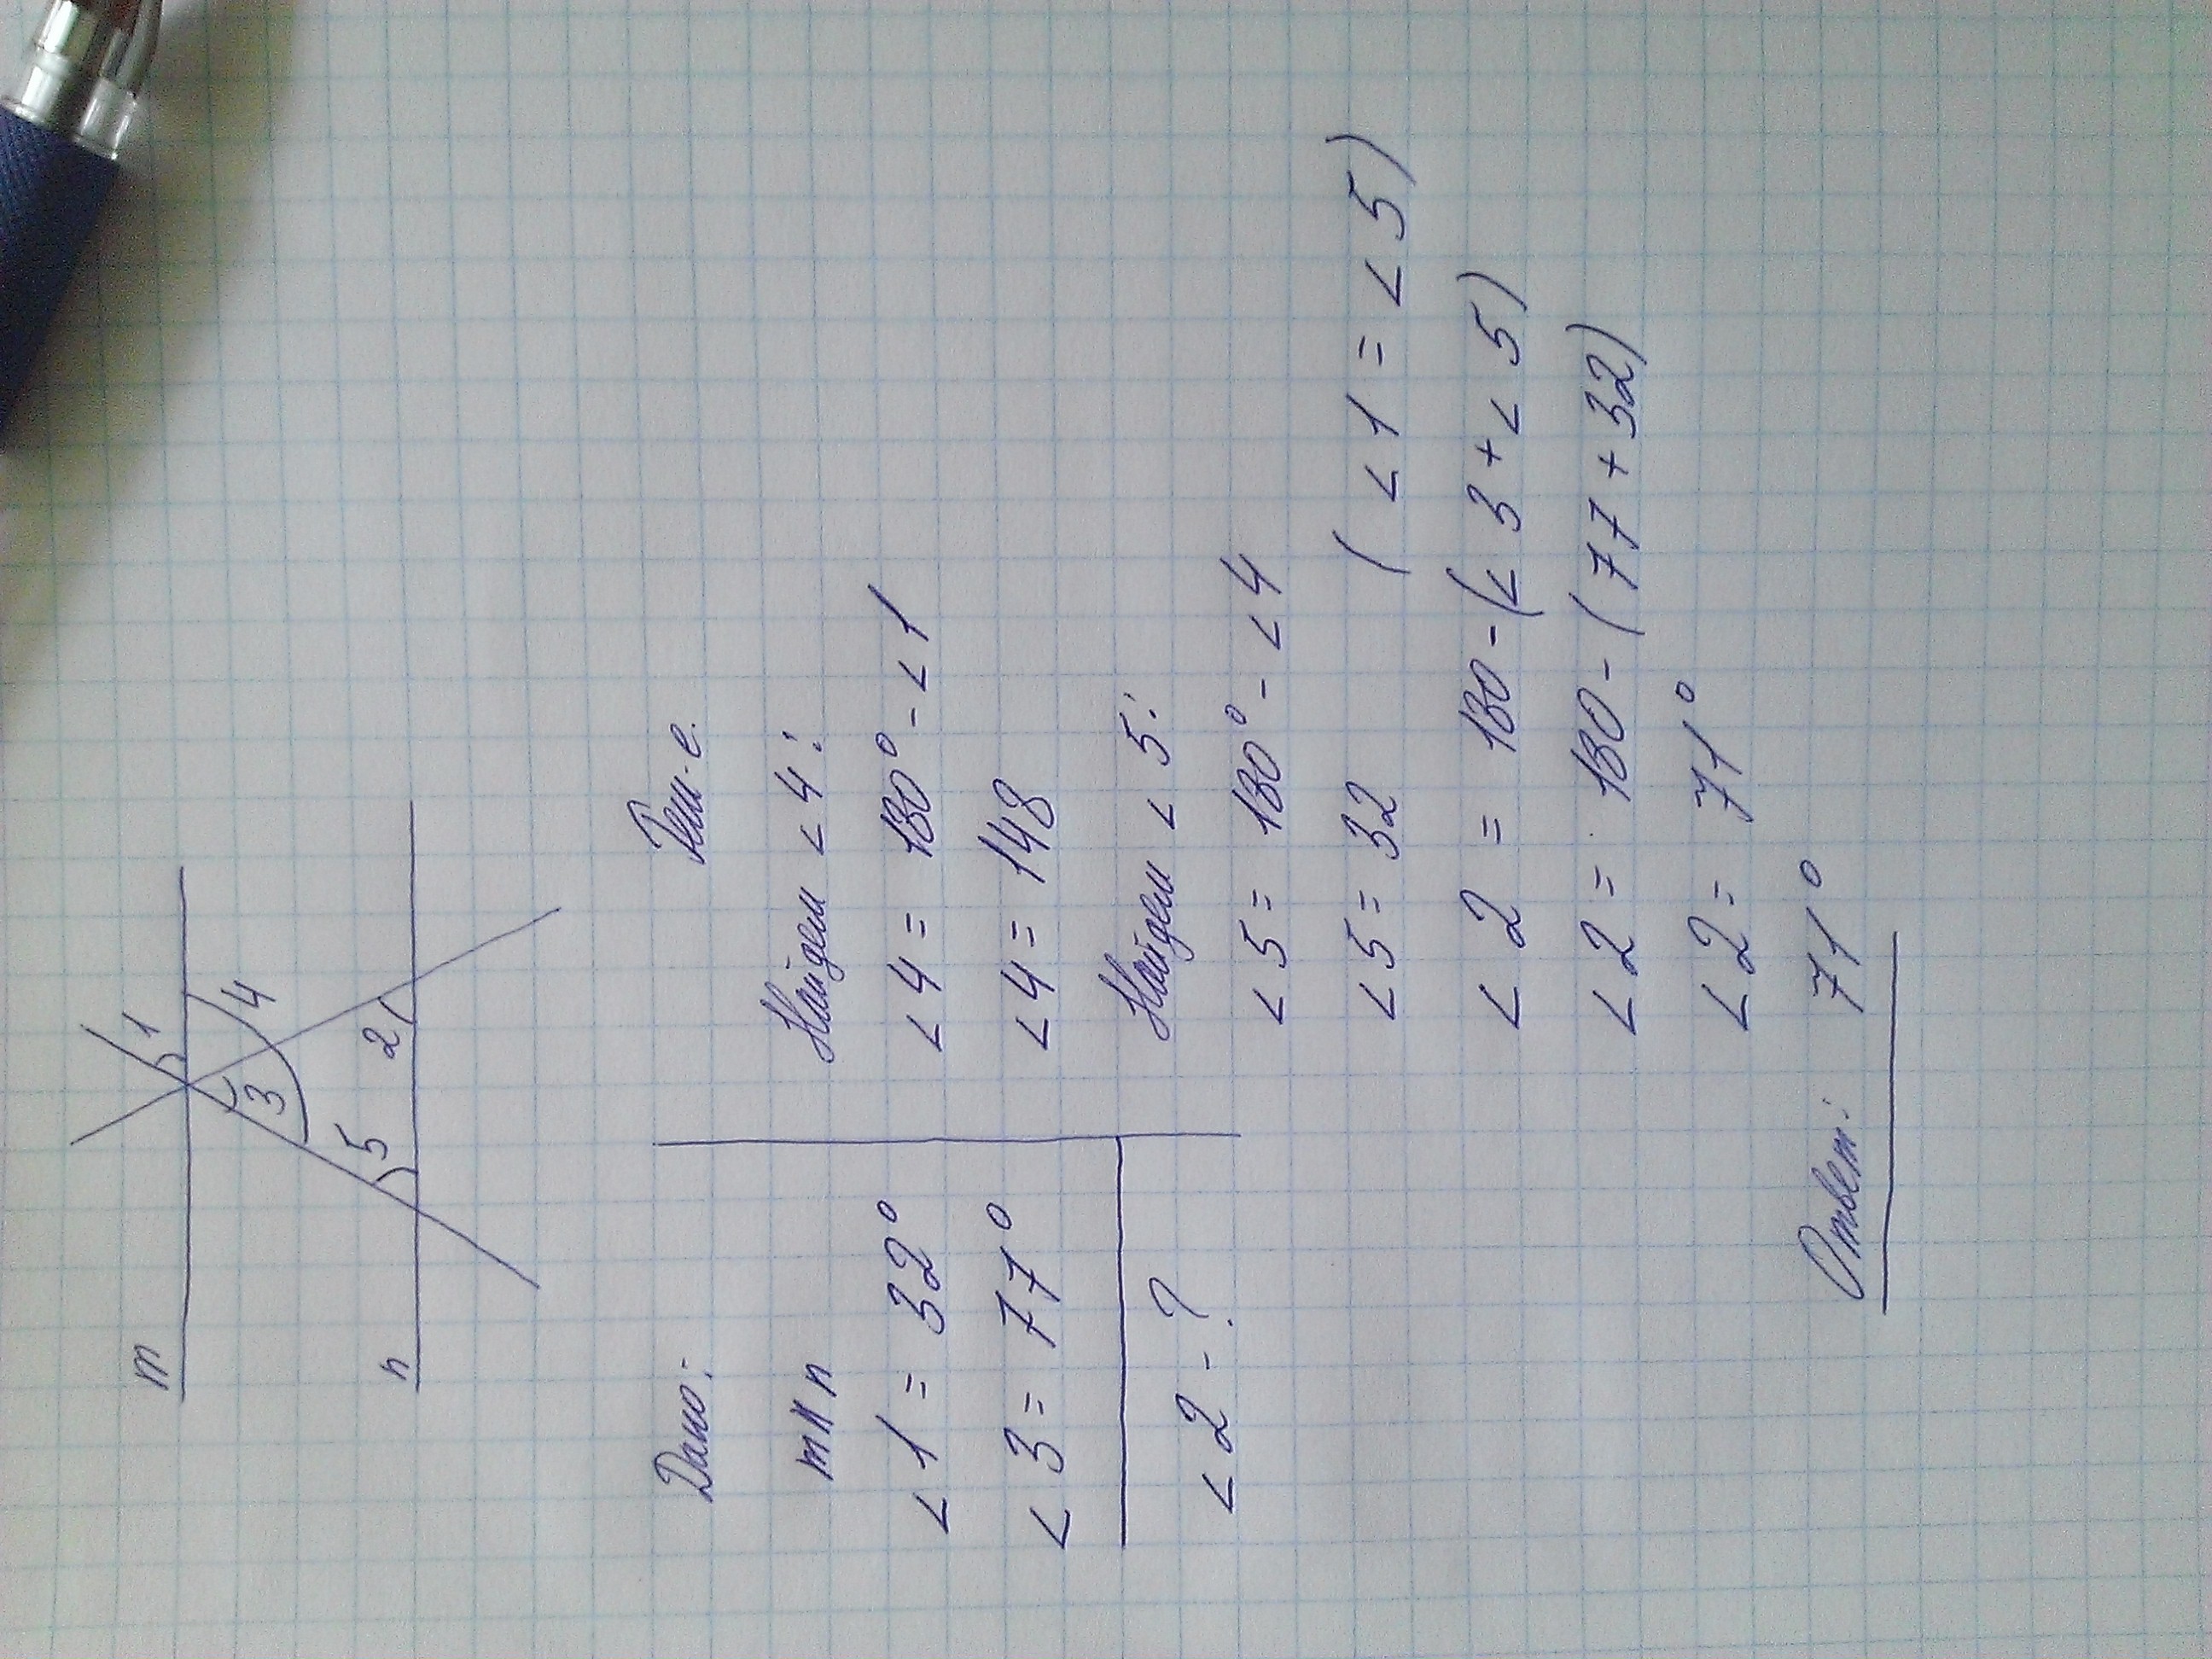 m
1
3
4
5
2
n
Дано:
m || n
∠1 = 32°
∠3 = 77°
∠2 - ?
Реш-е.
Найдем ∠4:
∠4 = 180° - ∠1
∠4 = 148
Найдем ∠5:
∠5 = 180° - ∠4
∠5 = 32 (∠1 = ∠5)
∠2 = 180 - (∠3 + ∠5)
∠2 = 180 - (77 + 32)
∠2 = 71°
Ответ: 71°